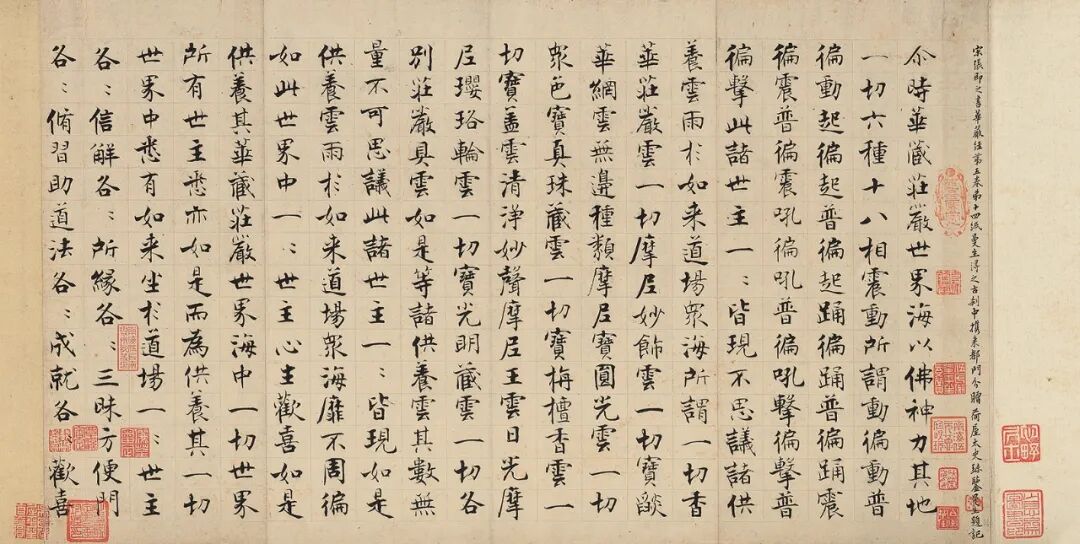 宋張即之書華嚴經第五卷第十四紙曼生得之古刹中攜來都門今贈荷屋太史題記
尒時華藏莊嚴世界海以佛神力其地
一切六種十八相震動所謂動徧動普
徧動起徧起普徧起踊徧踊普徧踊震
徧震普徧震吼徧吼普徧吼擊徧擊普
徧擊此諸世主一〻皆現不思議諸供
養雲雨於如来道場衆海所謂一切香
華莊嚴雲一切摩尼妙飾雲一切寶燄
華網雲無邊種類摩尼寶圓光雲一切
衆色寶真珠藏雲一切寶栴檀香雲一
切寶盖雲清浄妙聲摩尼王雲日光摩
尼瓔珞輪雲一切寶光明藏雲一切各
别莊嚴具雲如是等諸供養雲其數無
量不可思議此諸世主一〻皆現如是
供養雲雨於如来道場衆海靡不周徧
如此世界中一〻世主心生歡喜如是
供養其華藏莊嚴世界海中一切世界
所有世主悉亦如是而為供養其一切
世界中悉有如来坐於道場一〻世主
各〻信解各〻所縁各〻三昧方便門
各〻脩習助道法各〻成就各〻歡喜